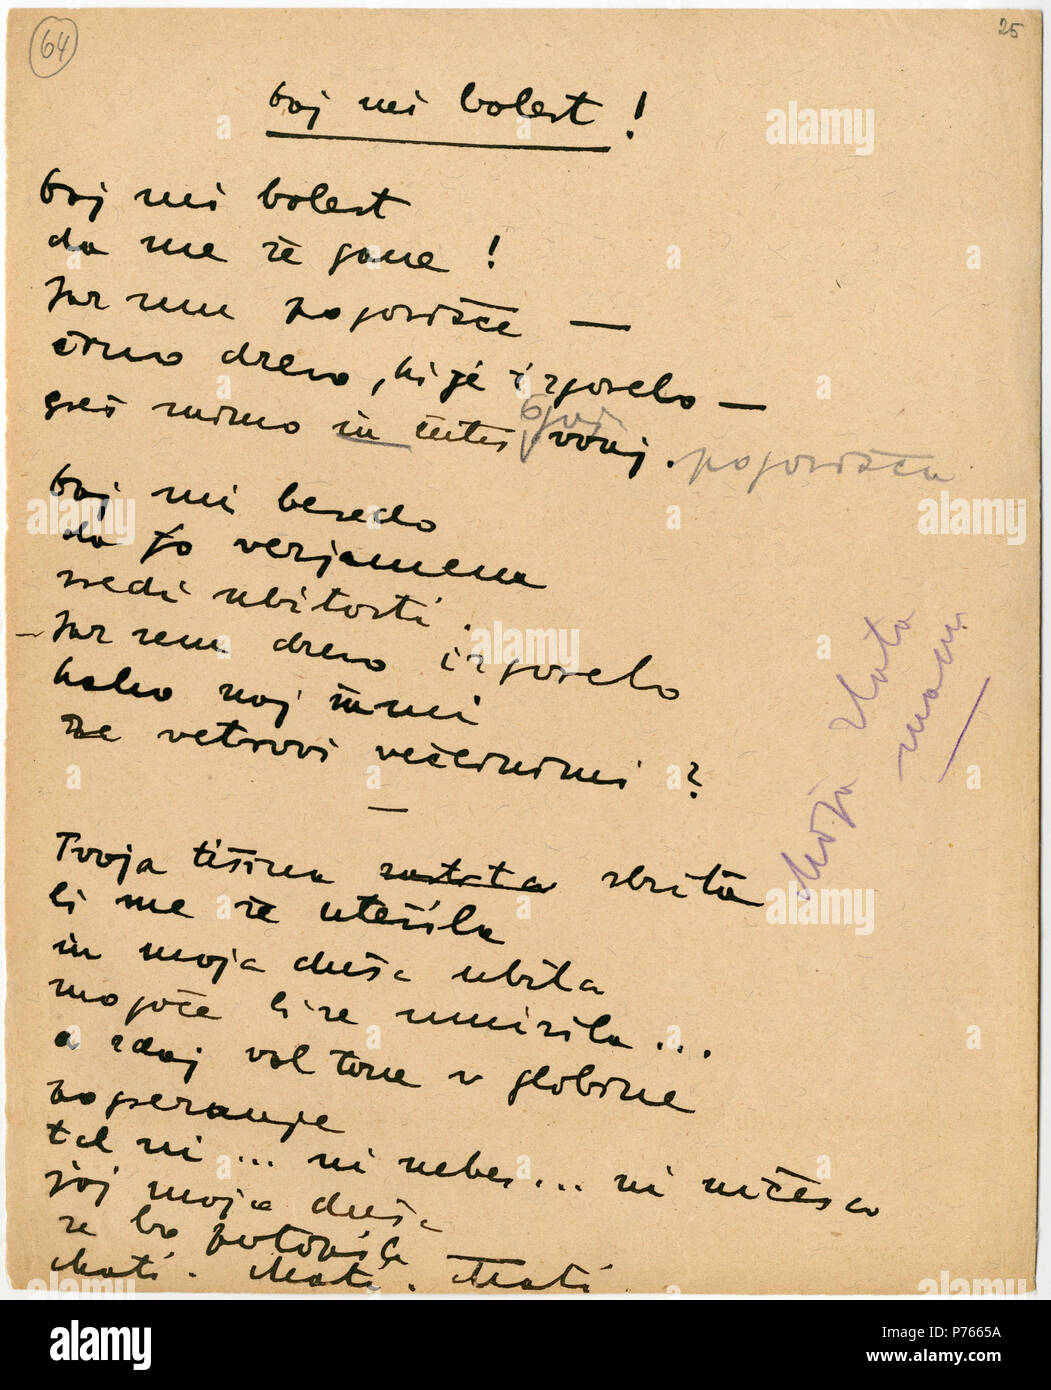 64
25
daj mi bolest !
daj mi bolest
da me že gane !
jaz sem pogorišče —
črno drevo, ki je izgorelo —
greš mimo in čutiš vonj. pogorišča
daj mi besedo
da jo verjamem
sredi ubitosti.
– jaz sem drevo izgorelo
kako naj šumi
ze vetrovi večernimi ?
—
Tvoja tišina zatrta skrita
bi me že utešila
in moja duša ubita
mogoče bi se umirila...
a zdaj vsa tone v globine
pogreznuje
tal ni ... ni neba ... ni ničesar
joj moja duša
se bo potopila —
Mati. Mati. Mati.
Moja zlata
mami
alamy
Image ID: P7665A
www.alamy.com